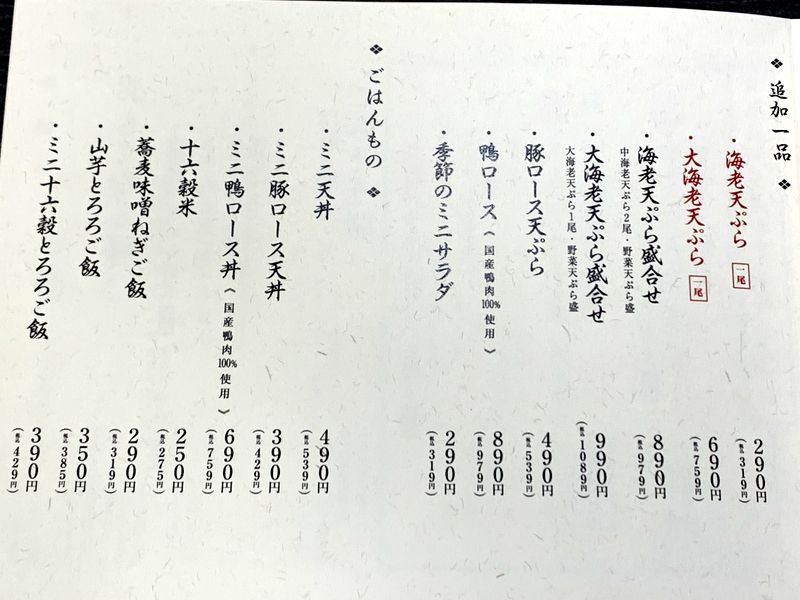 ❖ 追加一品 ❖
・海老天ぷら 一尾 290円
(税込 319円)
・大海老天ぷら 一尾 690円
(税込 759円)
・海老天ぷら盛合せ 890円
中海老天ぷら2尾・野菜天ぷら盛 (税込 979円)
・大海老天ぷら盛合せ 990円
大海老天ぷら1尾・野菜天ぷら盛 (税込 1089円)
・豚ロース天ぷら 490円
(税込 539円)
・鴨ロース(国産鴨肉100%使用) 890円
(税込 979円)
・季節のミニサラダ 290円
(税込 319円)
❖ ごはんもの ❖
・ミニ天丼 490円
(税込 539円)
・ミニ豚ロース天丼 390円
(税込 429円)
・ミニ鴨ロース丼(国産鴨肉100%使用) 690円
(税込 759円)
・十六穀米 250円
(税込 275円)
・蕎麦味噌ねぎご飯 290円
(税込 319円)
・山芋とろろご飯 350円
(税込 385円)
・ミニ十六穀とろろご飯 390円
(税込 429円)